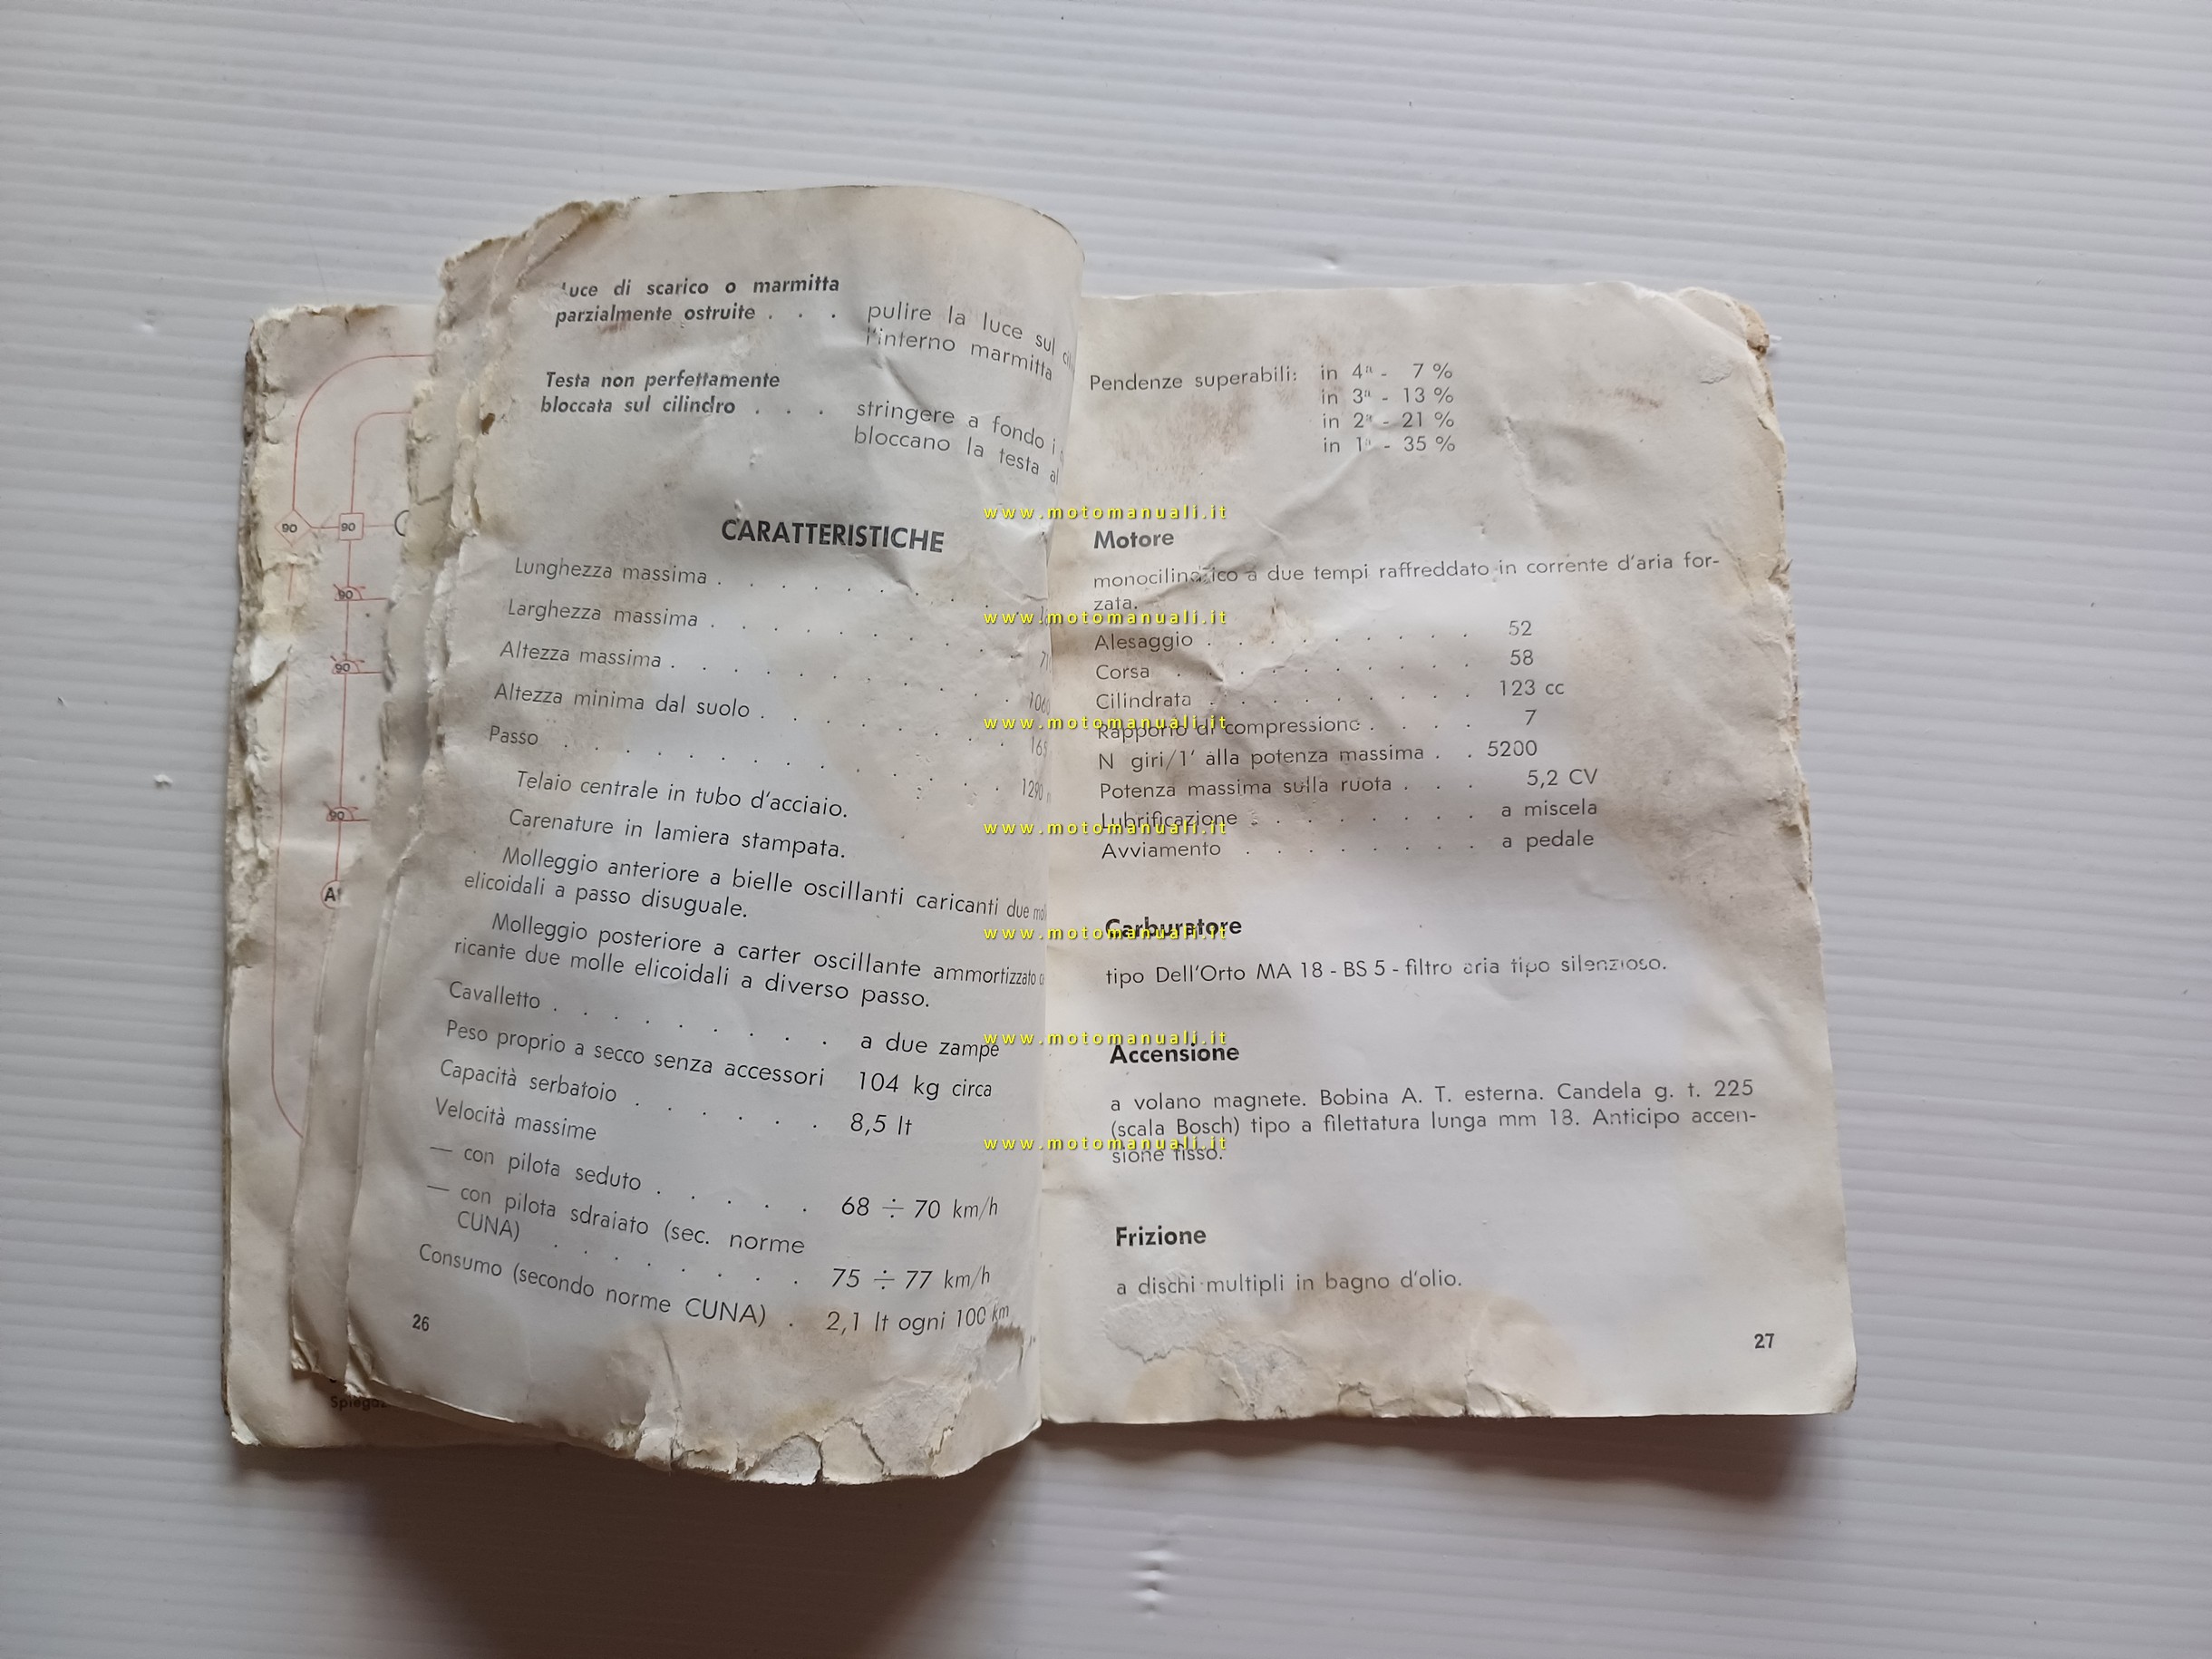 luce di scarico o marmitta
parzialmente ostruite . . . pulire la luce sul
l'interno marmitta
Testa non perfettamente
bloccata sul cilindro . . . stringere a fondo i
bloccano la testa al
CARATTERISTICHE
Lunghezza massima . . . . . . . .
Larghezza massima . . . . . . . .
Altezza massima . . . . . . . . .
Altezza minima dal suolo . . . . . . .
Passo . . . . . . . . . . .
Telaio centrale in tubo d'acciaio.
Carenature in lamiera stampata.
Molleggio anteriore a bielle oscillanti caricanti due
elicoidali a passo disuguale.
Molleggio posteriore a carter oscillante ammortizzato
ricante due molle elicoidali a diverso passo.
Cavalletto . . . . . . . . a due zampe
Peso proprio a secco senza accessori 104 kg circa
Capacità serbatoio . . . . . . 8,5 lt
Velocità massime
— con pilota seduto . . . . . 68 ÷ 70 km/h
— con pilota sdraiato (sec. norme
CUNA) . . . . . . . 75 ÷ 77 km/h
Consumo (secondo norme CUNA) . 2,1 lt ogni 100 km
26
Pendenze superabili: in 4ª - 7 %
in 3ª - 13 %
in 2ª - 21 %
in 1ª - 35 %
Motore
monocilindrico a due tempi raffreddato in corrente d'aria for-
zata.
Alesaggio . . . . . . . . . 52
Corsa . . . . . . . . . . 58
Cilindrata . . . . . . . . . 123 cc
Rapporto di compressione . . . . 7
N giri/1' alla potenza massima . . 5200
Potenza massima sulla ruota . . . 5,2 CV
Lubrificazione . . . . . . . . a miscela
Avviamento . . . . . . . . a pedale
Carburatore
tipo Dell'Orto MA 18 - BS 5 - filtro aria tipo silenzioso.
Accensione
a volano magnete. Bobina A. T. esterna. Candela g. t. 225
(scala Bosch) tipo a filettatura lunga mm 18. Anticipo accen-
sione fisso.
Frizione
a dischi multipli in bagno d'olio.
27
90 90
90
90
90
www.motomanuali.it
www.motomanuali.it
www.motomanuali.it
www.motomanuali.it
www.motomanuali.it
www.motomanuali.it
www.motomanuali.it